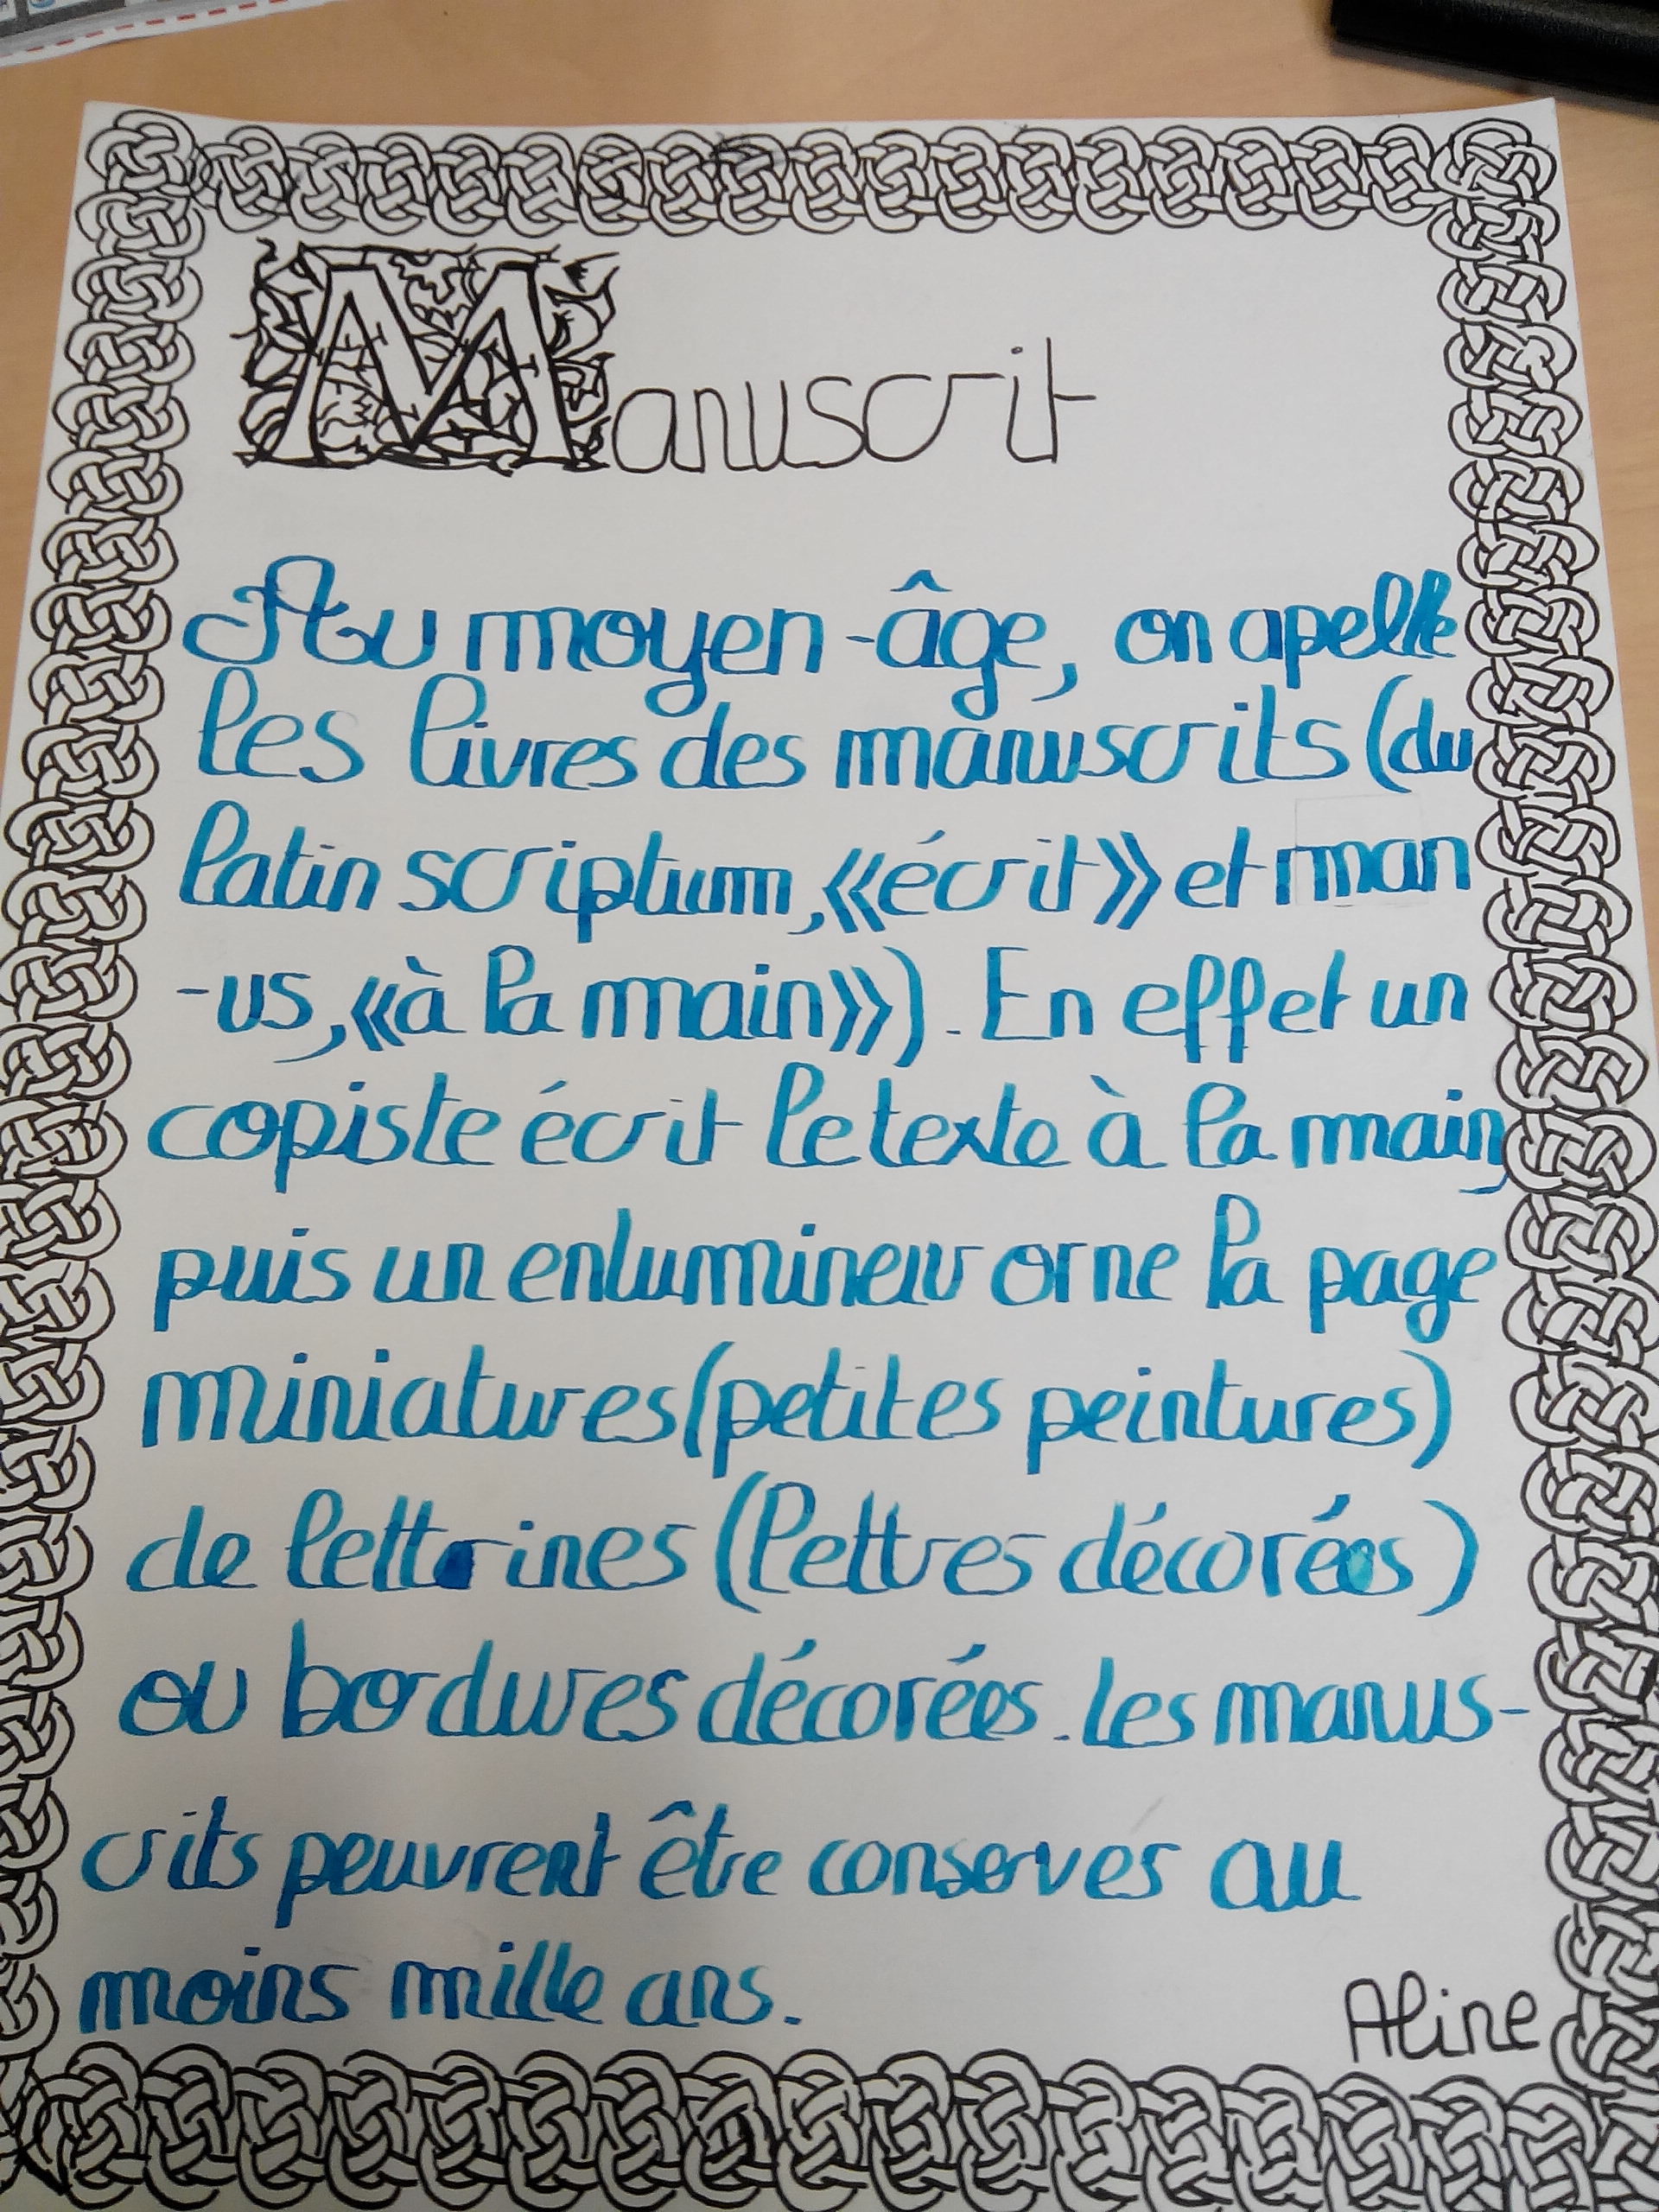 Manuscrit
Au moyen-âge, on apelle
les livres des manuscrits (du
latin scriptum, «écrit» et man
-us, «à la main»). En effet un
copiste écrit le texte à la main,
puis un enlumineur orne la page
miniatures (petites peintures)
de lettrines (lettres décorées)
ou bordures décorées. les manus-
crits peuvrent être conserves au
moins mille ans.
Aline